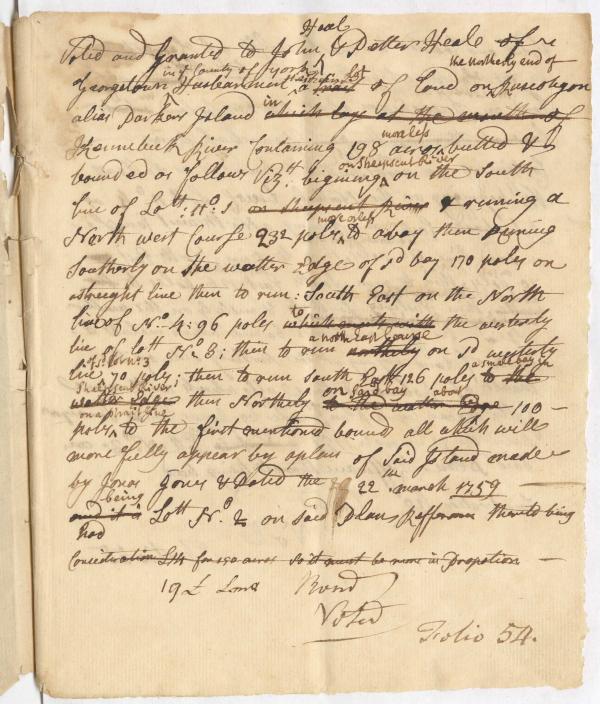 Heal
Voted and Granted to John & Petter Heale of
in ye County of york the northerly end of
Georgetown Husbandmen a tract of land on Jurisquegon
alias Darkers Island in which lays at the mouth of
Kennebeck River Containing 198 acres more less butted &
bounded as follows Vizt. bigining on Sheepscut River on the South
line of Lott: No. 1 on Sheepscut River & runing a
North west Course 232 poles more or less to a bay then runing
Southerly on the watter Edge of sd bay 170 poles on
a straight line then to run: South East on the North
line of No. 4: 96 poles to which meets with the westerly
line of Lott No. 3; then to run northerly a north East Course on sd westerly
line of sd Lott No. 3 70 poles; then to run south East 126 poles to the a small bay in
Sheepscut River watter Edge then Northely on said bay to the watter Edge about 100
poles on a strait line to the first mentioned bound all which will
more fully appear by a plan of Said Island made
by Jonas Jones & Dated the 22 march 1759
being and it is Lott No. 2 on said Plan Refferance thereto being
had
Consideration for 190 acres so it must be more in Propotion
19£ Bond
Voted
Folio 54.